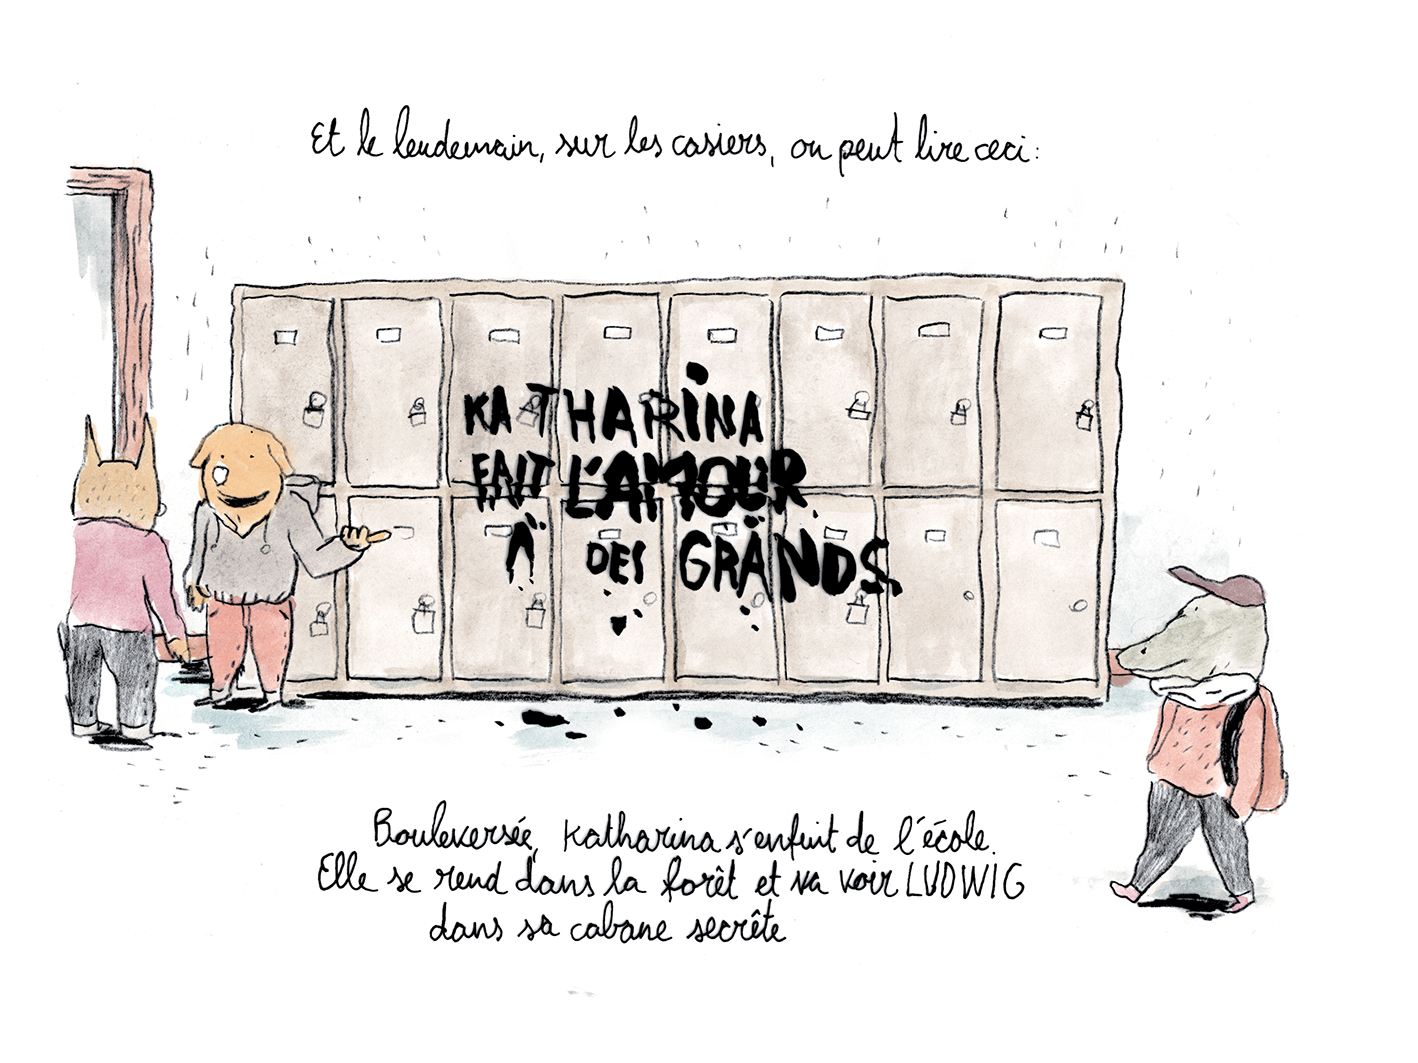 Et le lendemain, sur les casiers, on peut lire ceci:
KATHARINA
FAIT L'AMOUR
À DES GRANDS
Bouleversée, Katharina s'enfuit de l'école.
Elle se rend dans la forêt et va voir LUDWIG
dans sa cabane secrète